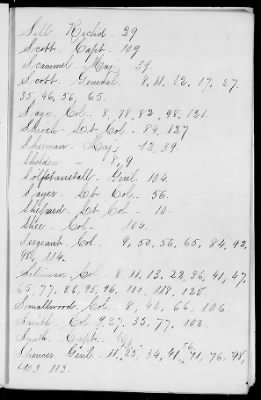 Sill Richd - 29
Scott Capt - 109
Scammel Maj - 29.
Scott General 8, 11, 12, 17, 27.
35, 46, 56, 65.
Sage Col - 8, 78, 82, 98, 121.
Lt Col - 84, 127
Sherman Maj - 12, 39.
Sheldon - 8, 9
Genl 104.
Lt Col - 56.
Shepard Lt Col - 10.
Col - 104.
Sergeant Col. 9, 50, 56, 65, 84, 92,
98, 114.
Silliman Col 8, 11, 13, 22, 36, 41, 47,
65, 77, 86, 95, 96, 100, 118, 125.
Smallwood Col. 8, 40, 66, 106.
Smith Col 9, 27, 35, 77, 100.
Smith Capt
Spencer Genl 11, 25, 34, 41, 71, 76, 98,
103, 113.